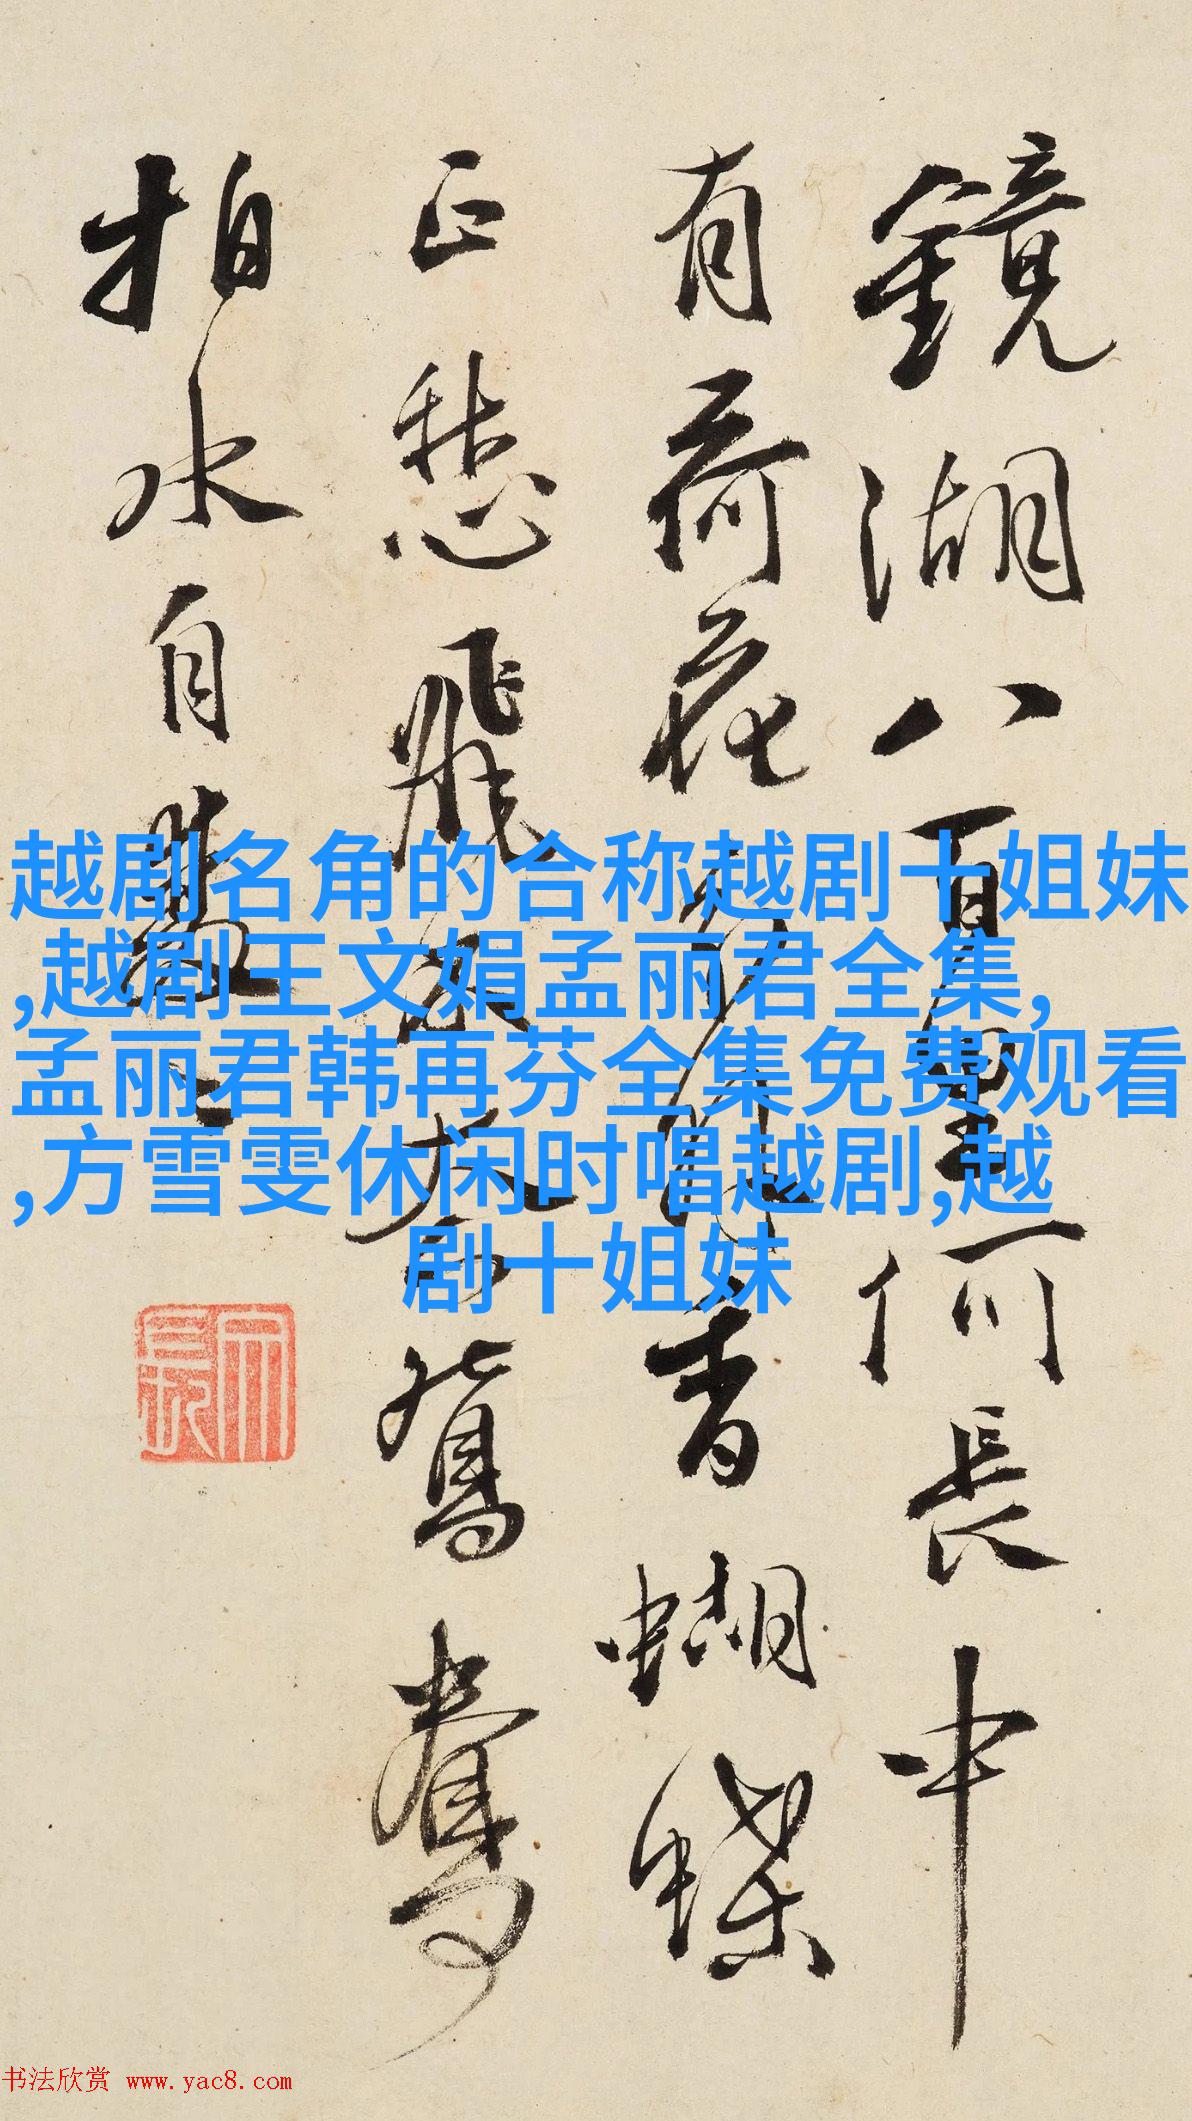 鏡湖八百里何長中
有荷花分外香蝴蝶
正愁飛不鴛鴦
拍水自雙
越剧名角的合称越剧十姐妹
,越剧王文娟孟丽君全集,
孟丽君韩再芬全集免费观看
,方雪雯休闲时唱越剧,越
剧十姐妹
书法欣赏 www.yac8.com